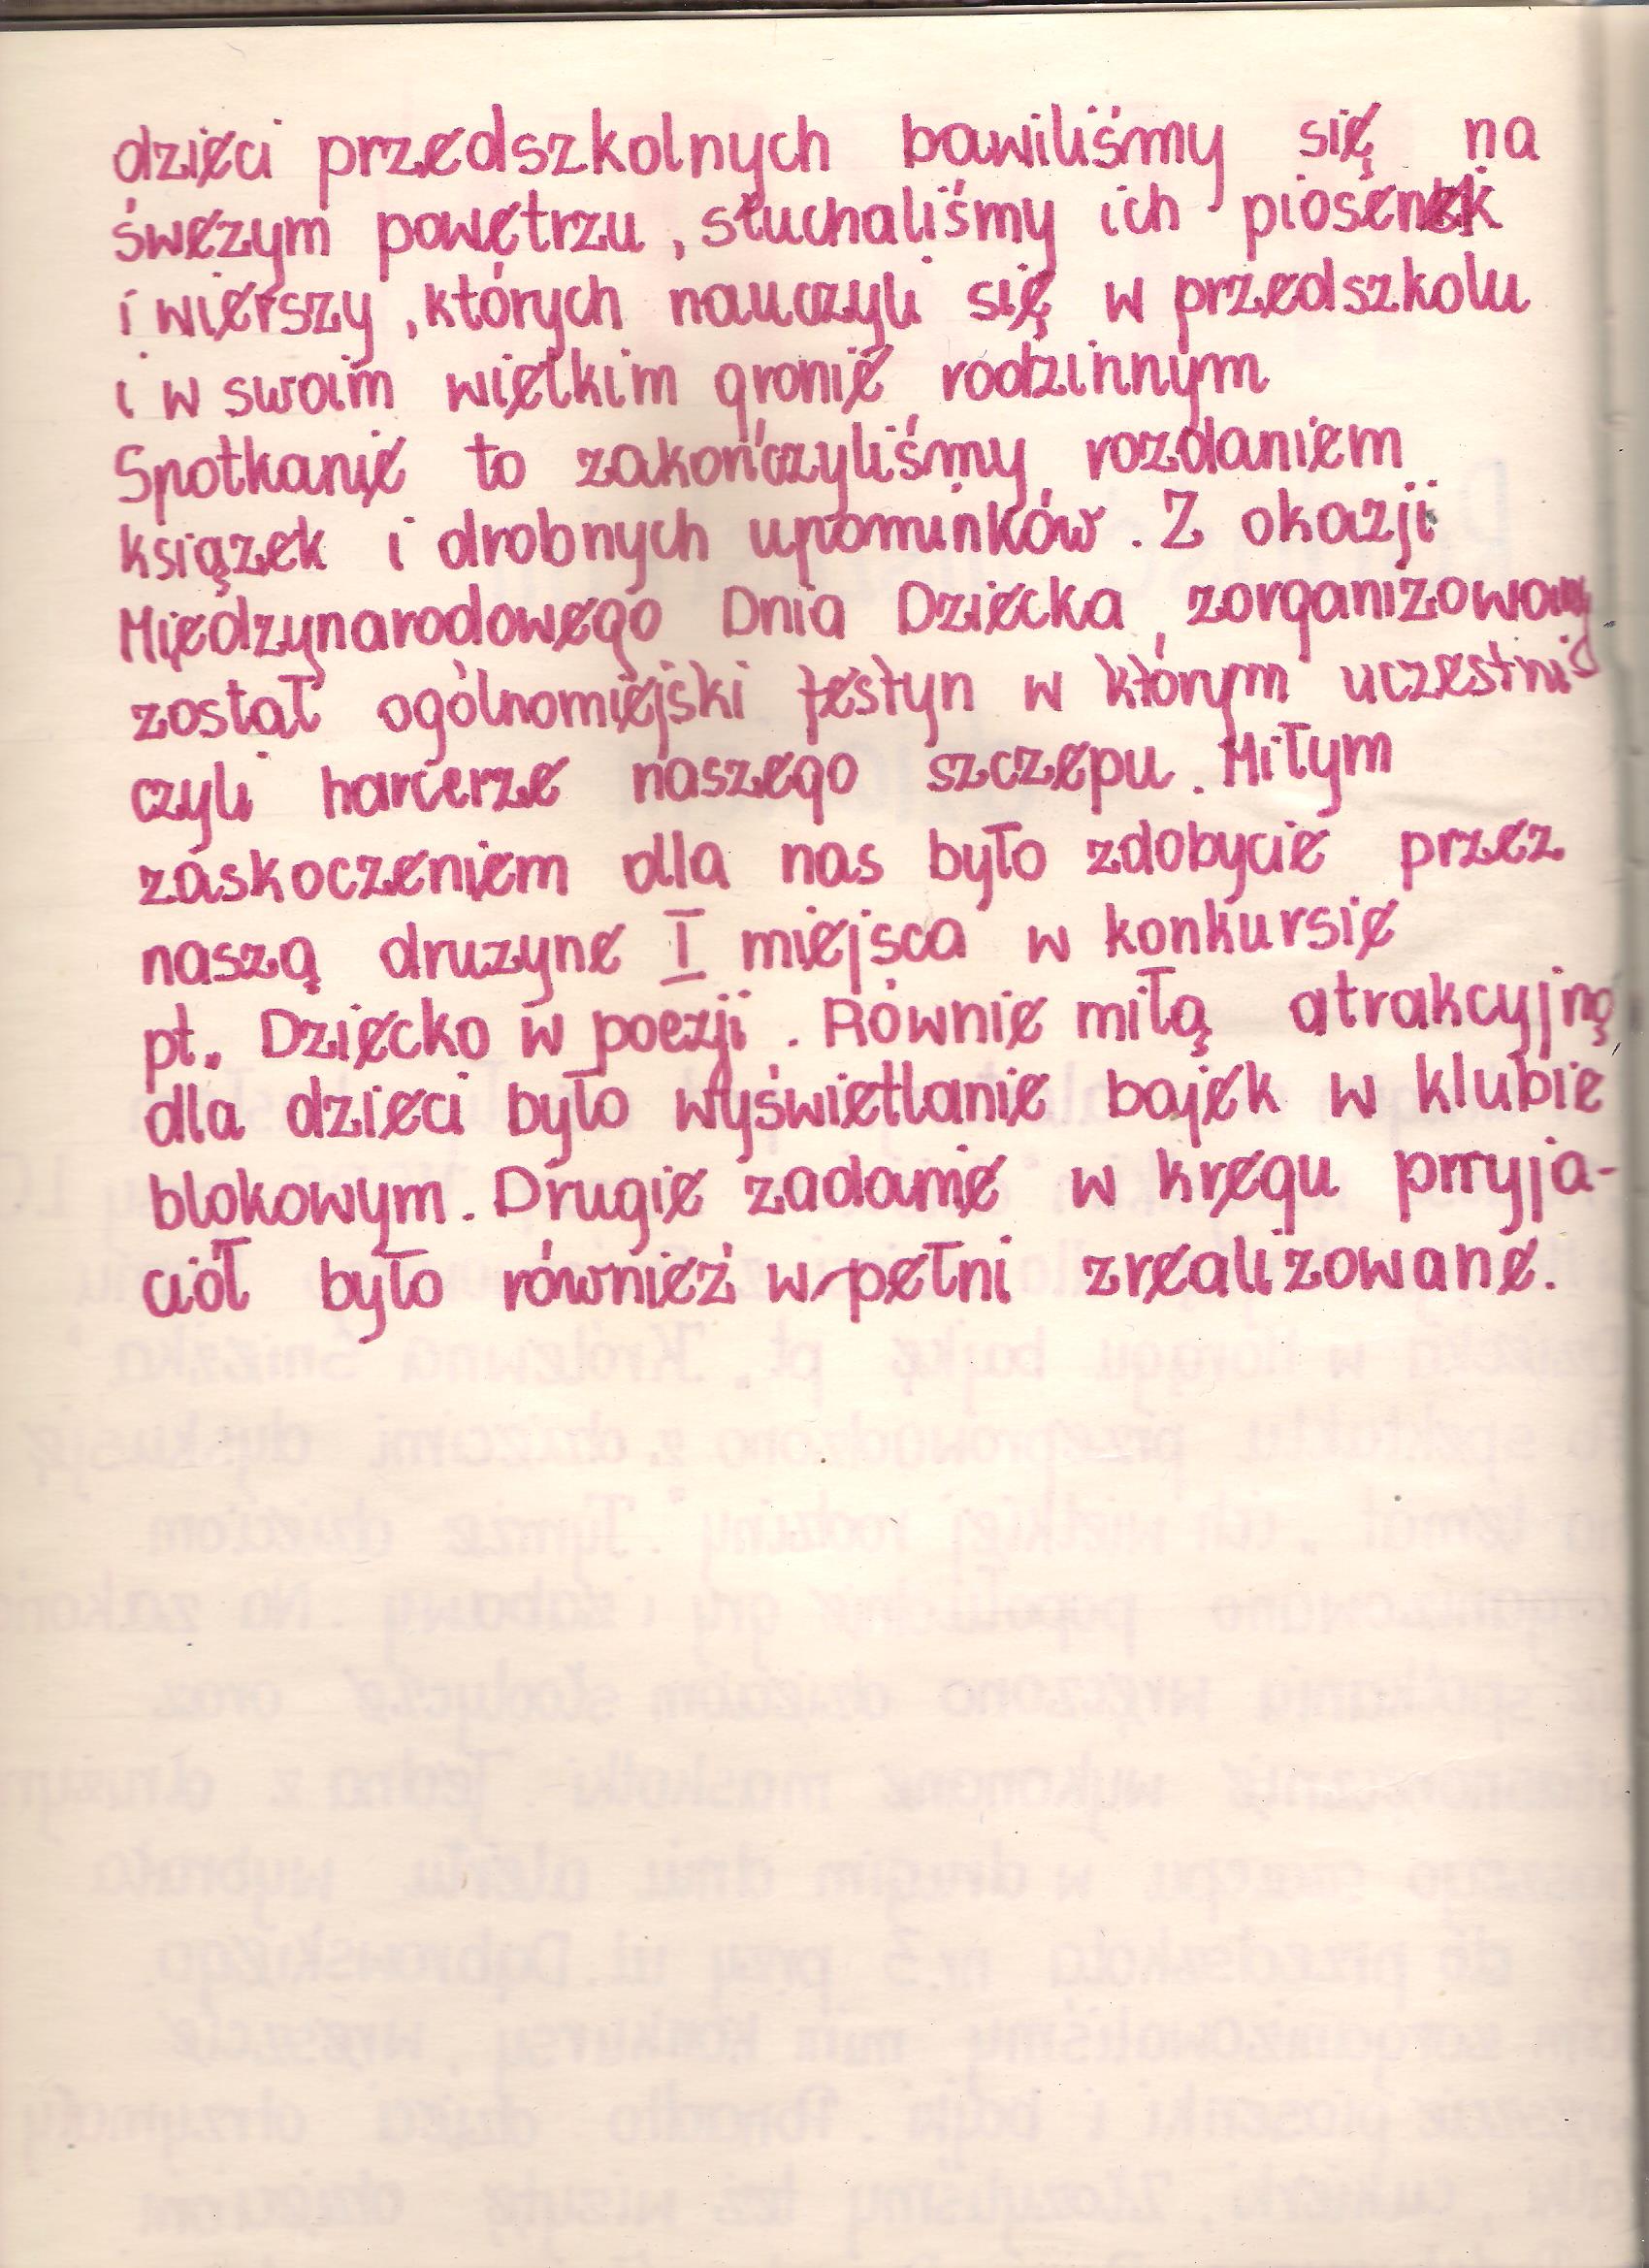 dzieci przedszkolnych bawiliśmy się na
śwezym powętrzu, słuchaliśmy ich piosenek
i wierszy, których nauczyli się w przedszkolu
i w swoim wielkim gronie rodzinnym
Spotkanie to zakończyliśmy rozdaniem
książek i drobnych upominków. Z okazji
Międzynarodowego Dnia Dziecka, zorganizowany
został ogólnomiejski festyn w którym uczestni
czyli harcerze naszego szczepu. Miłym
zaskoczeniem dla nas było zdobycie przez
naszą druzyne I miejsca w konkursie
pt. Dziecko w poezji. Równie miłą atrakcyjną
dla dzieci było wyświetlanie bajek w klubie
blokowym. Drugie zadanie w kręgu przyja-
ciół było również w pełni zrealizowane.